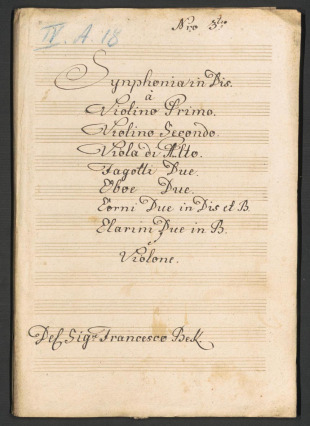 IV. A. 18
Nro 3tio
Synphonia in Dis.
à
Violino Primo.
Violino Secondo.
Viola di Alto.
Fagotti Due.
Eboe Due.
Corni Due in Dis et B.
Clarini Due in B.
e
Violone.
Del Sigr Francesco Bek.